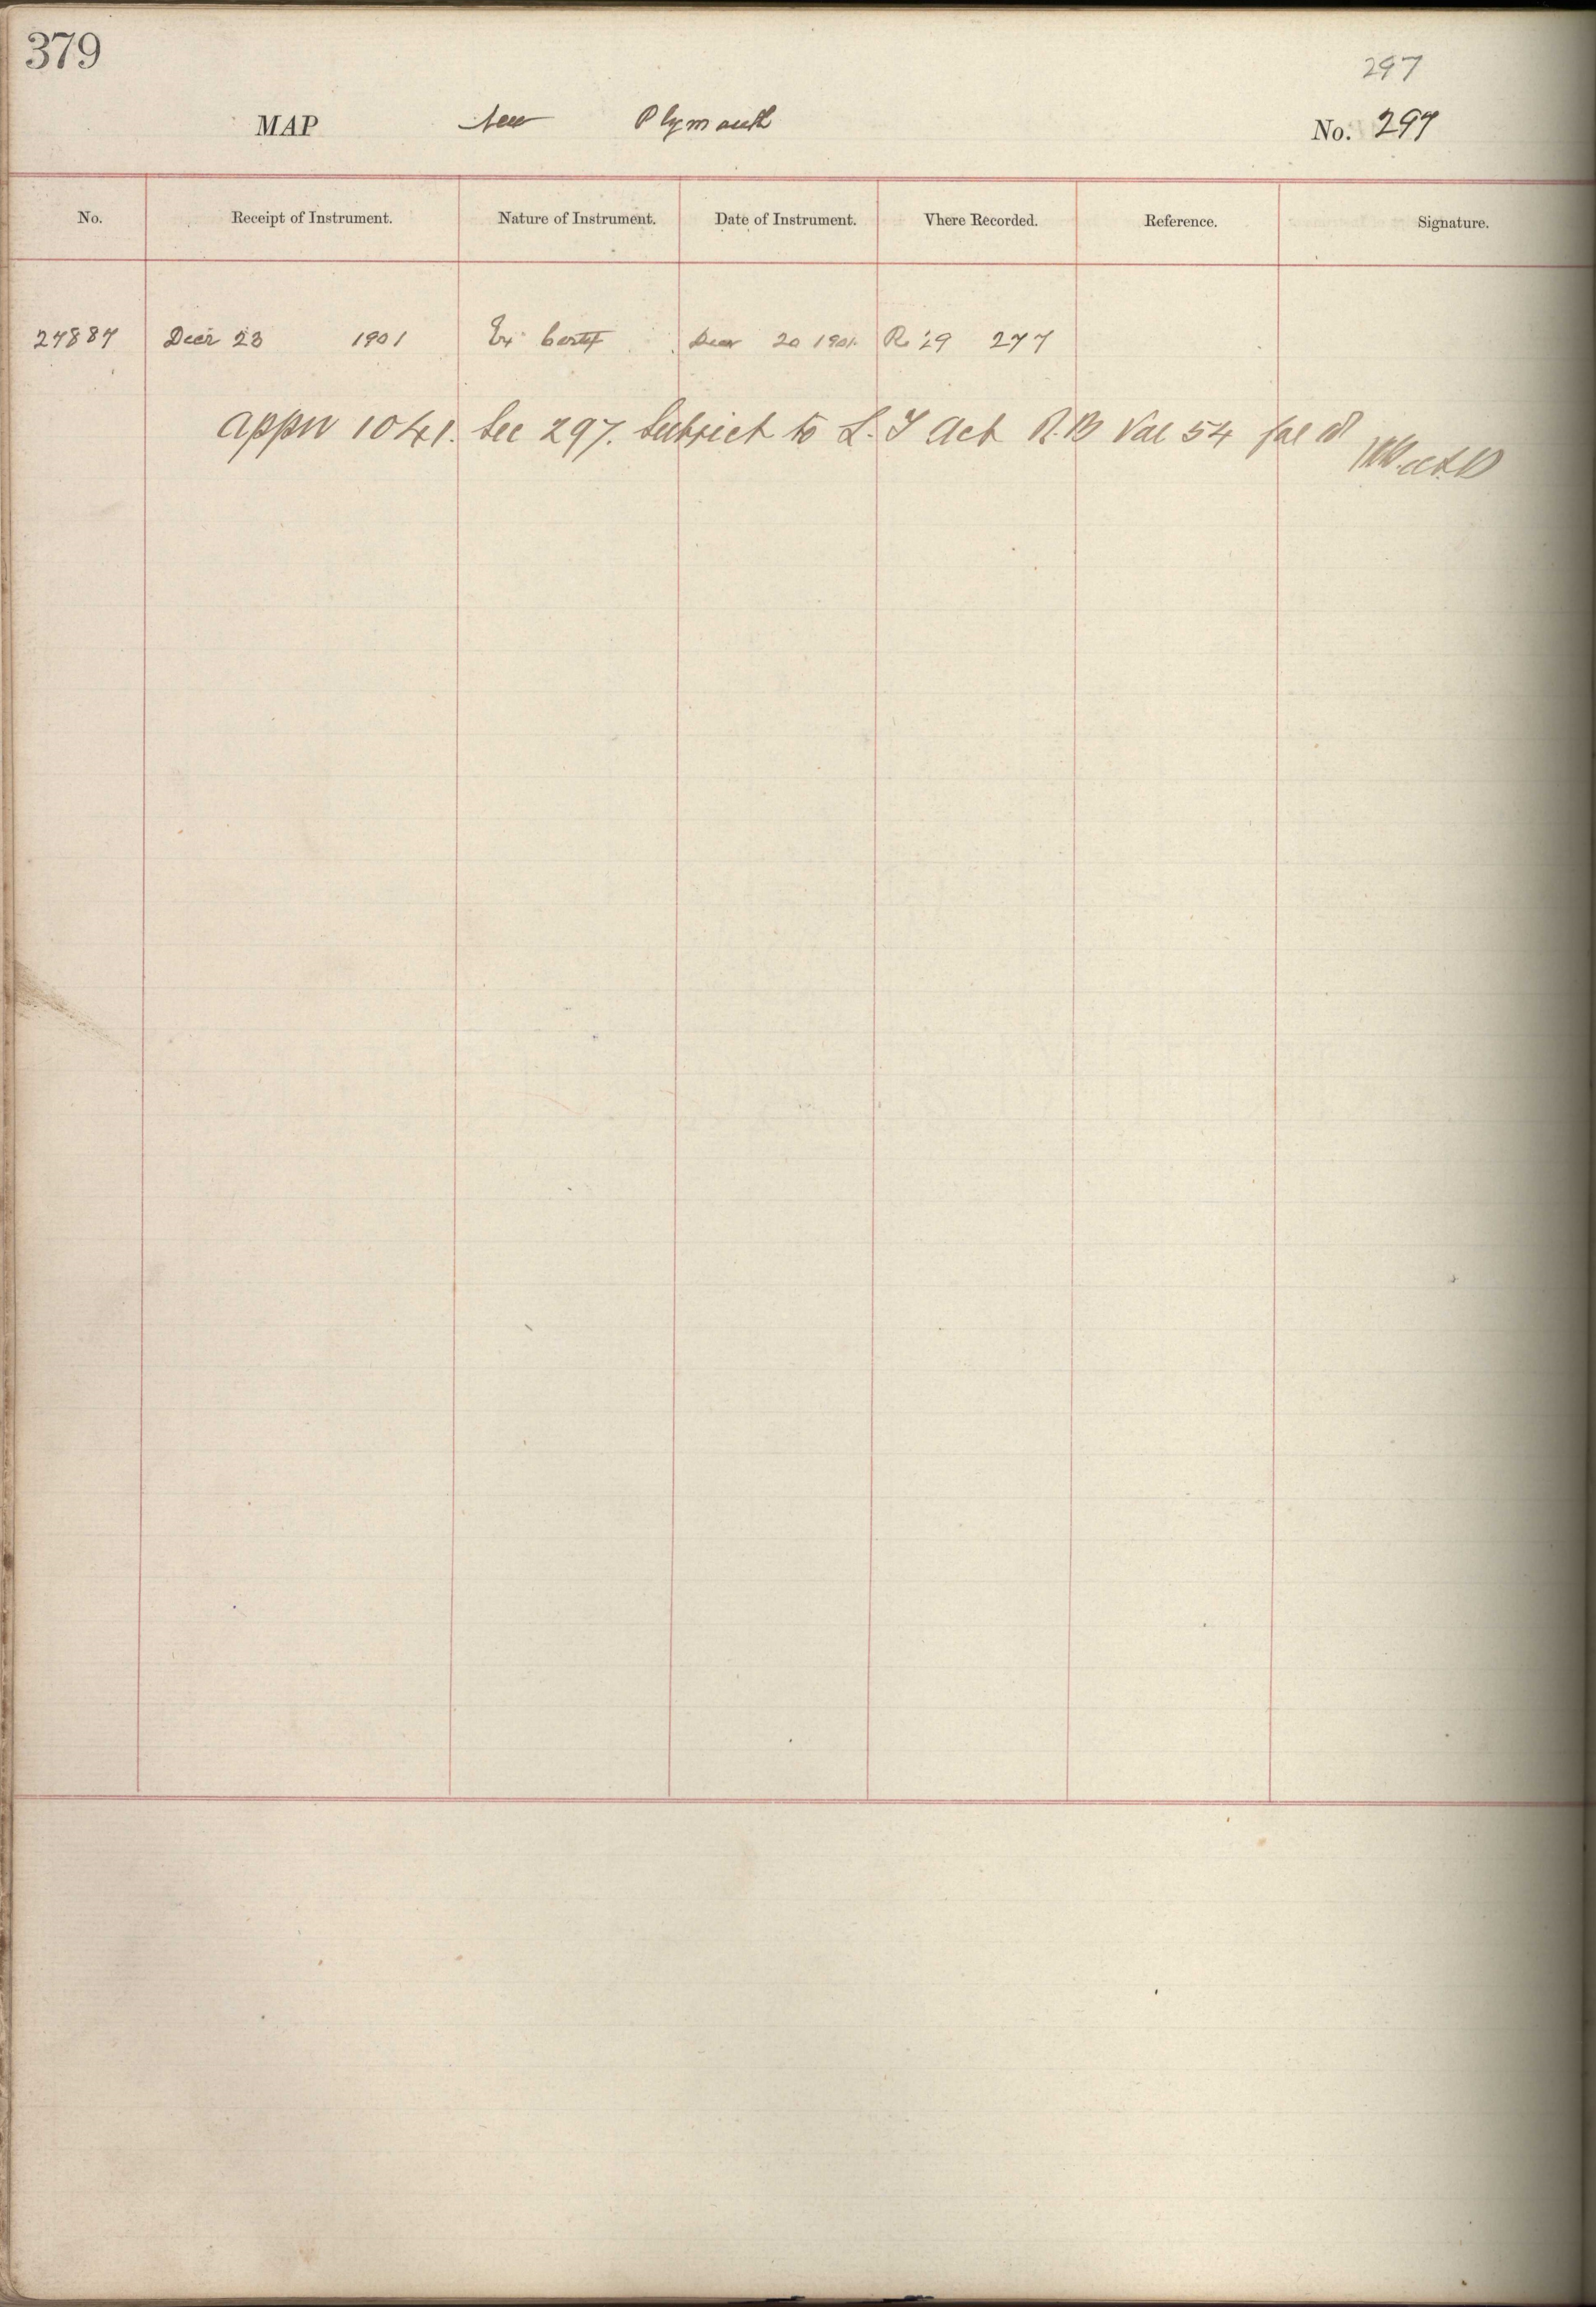 379
297
MAP New Plymouth No. 297
No. Receipt of Instrument. Nature of Instrument. Date of Instrument. Where Recorded. Reference. Signature.
27887 Decr 23 1901 Ex Certf Decr 20 1901. R. 29 277
Appn 1041. Sec 297. Subject to L. T Act R.B Vol 54 fol